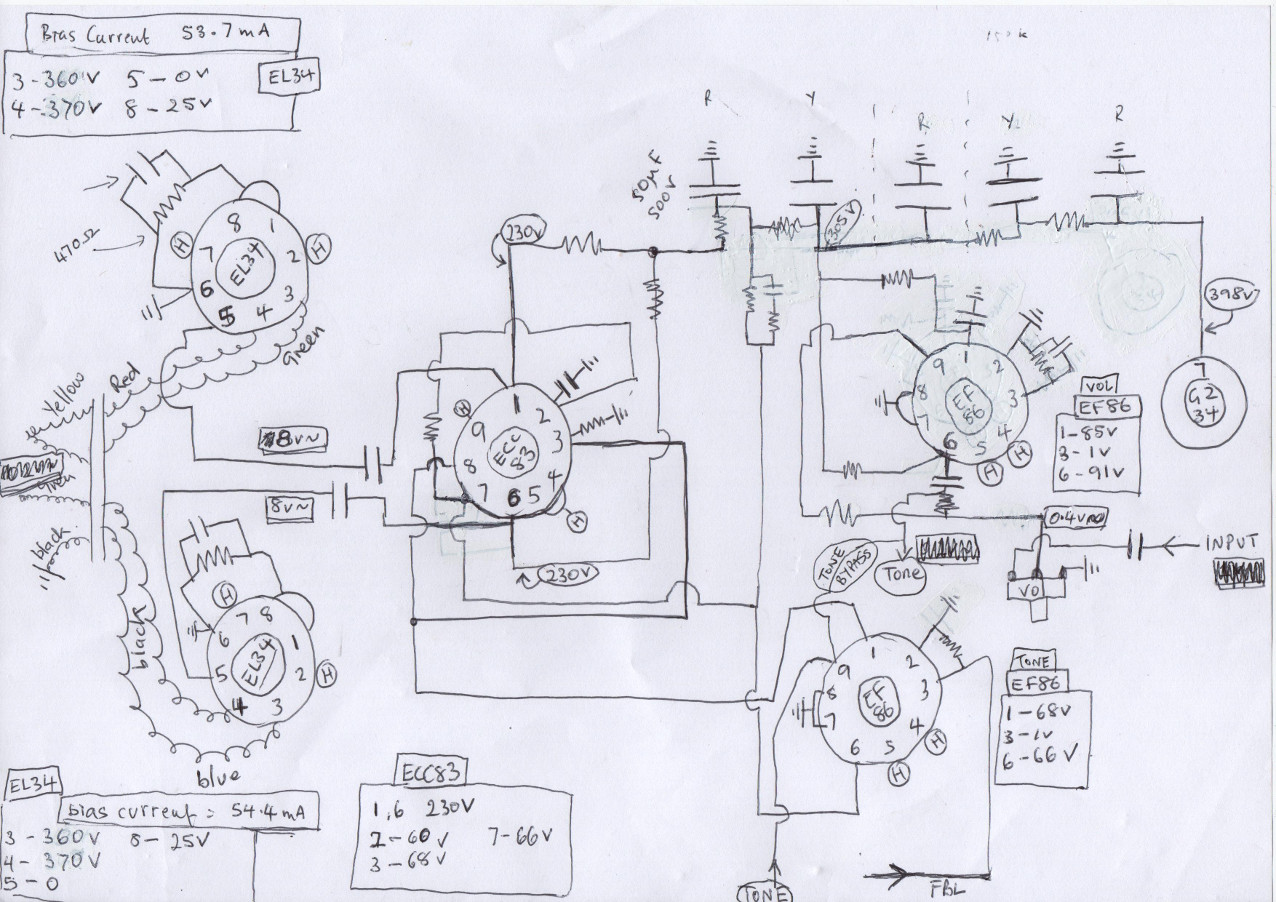 Bias Current 53.7mA
3-360V 5-0V EL34
4-370V 8-25V
470Ω
H
H
8 1
7 2
EL34
6 3
5 4
Yellow
Red
Green
black
black
blue
8V~
8V~
H
8
7
6
1
5
2
EL34
4
3
H
EL34
Bias current = 54.4mA
3-360V 8-25V
4-370V
5-0
230V
50µF
500V
R
Y
R
Y
R
305V
398V
7
GZ
34
H
1
2
9
3
ECC
83
8
4
7 6 5
H
230V
ECC83
1,6 230V
2-60V 7-66V
3-68V
1
9 2
8
EF
86
3
7
6 5 4
H
H
VOL
EF86
1-85V
3-1V
6-91V
0.4V
INPUT
VO
TONE
BYPASS
Tone
1
9 2
8 3
EF
86
7 4
6 5
H
H
TONE
EF86
1-68V
3-1V
6-66V
TONE
FBL